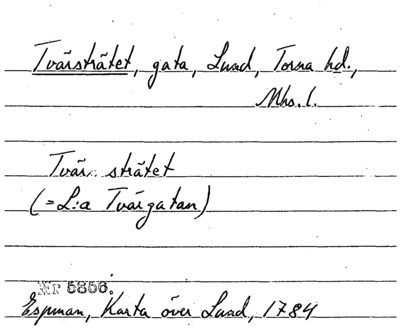 Tvärsträtet, gata, Lund, Torna hd.,
Mhs. l.
Tvär. strätet
(=L:a Tvärgatan)
Nr 5856.
Espman, Karta över Lund, 1784